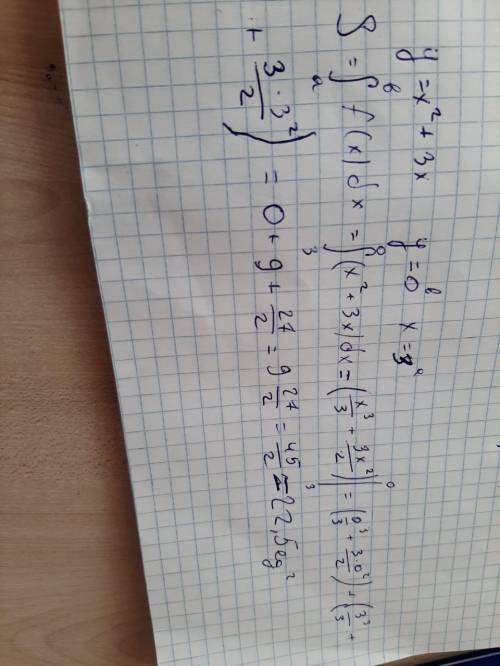 y = x² + 3x   y = 0 b   x = 3 a
S = ∫ₐᵇ f(x)dx = ∫₃⁰ (x² + 3x)dx = (x³/3 + 3x²/2)|₃⁰ = (0³/3 + 3·0²/2) + (3³/3 +
+ 3·3²/2) = 0 + 9 + 27/2 = 9 27/2 = 45/2 = 22,5 eg²